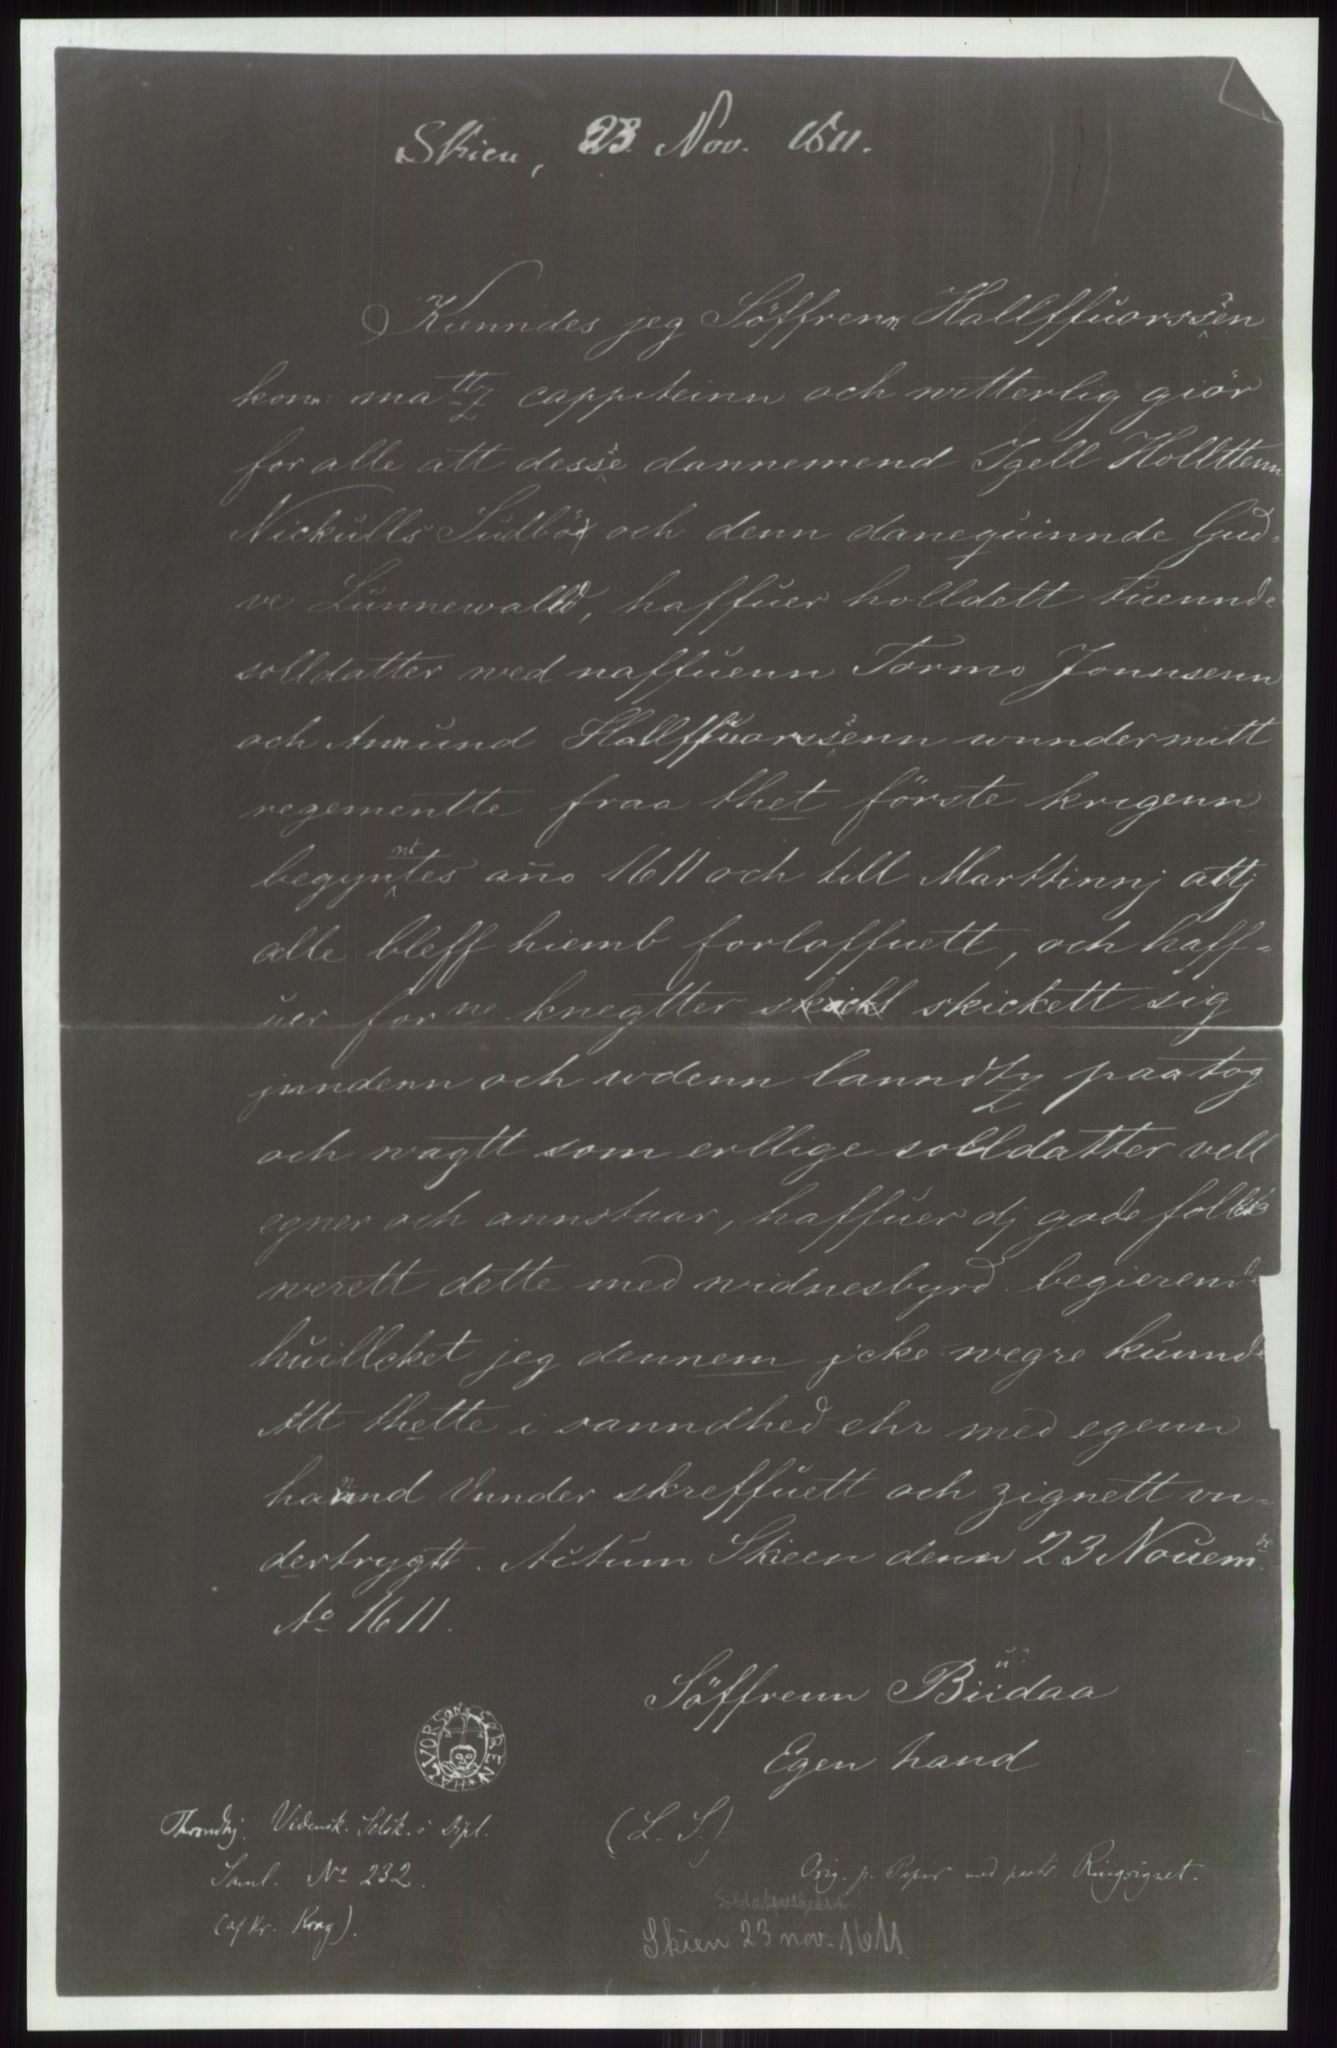 Skien, 23 Nov. 1611.
Kienndes jeg Söffrenn Hallffuorssen
kon: ma tty cappiteinn och witterlig giör
for alle att desse dannemend Igell Hollttenn
Nickulls Sudbö och denn danequinnde Gud-
ve Lunnewalld, haffuer holldett tuennde
solldatter wed naffuenn Tormo Jonnsenn
och Anund Hallffuorssenn wnnder mitt
regementte fraa thet förste krigenn
begyntes año 1611 och till Marttinnj attj
alle bleff hiemb forloffuett, och haff-
uer for ne knegtter skickett sig
jnndenn och wdenn lanndtz paa tog
och wagtt som erllige solldatter vell
egner och annstaar, haffuer dj gode follck
werett dette med widnesbyrd begierend
huillcket jeg dennem jcke wegre kunnde
Att thette i sanndhed ehr med egenn
haand Vnnder skreffuett och zignett vn-
dertrygtt. Actum Skieen denn 23 Nouem br
Ao 1611.
Söffrenn Büdaa
Egen hand
HALVORSøN SøREN
(L. S.)
Throndhj. Vidensk. Selsk.s Dipl.
Saml. No 232.
(af Kr. Krag).
Orig. p. Papir med paatr. Ringsignet.
Skien 23 nov. 1611